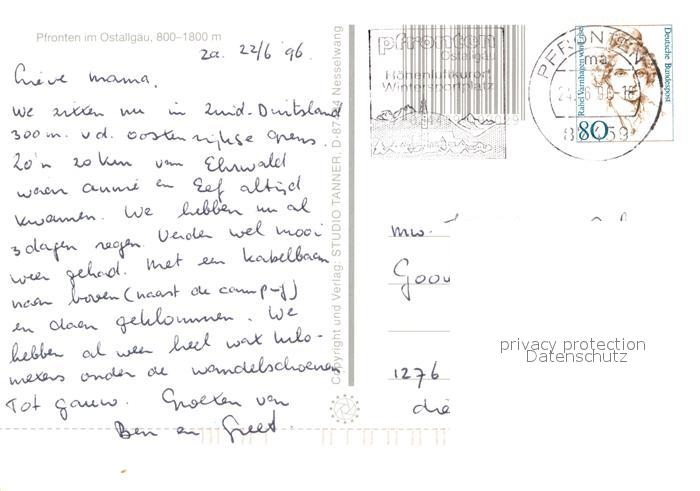 Pfronten im Ostallgäu, 800–1800 m
za. 22/6 '96.
Lieve mama,
We zitten nu in Zuid-Duitsland
300 m. v.d. oostenrijkse grens.
Zo'n 20 km van Ehrwald
waren Annie en Eef altijd
kwamen. We hebben nu al
3 dagen regen. Verder wel mooi
weer gehad. Met een kabelbaan
naar boven (naast de camping)
en daar geklommen. We
hebben al weer heel wat kilo-
meters onder de wandelschoenen
Tot gauw. Groeten van
Ben en Greet.
Copyright und Verlag: STUDIO TANNER, Nesselwang
pfronten
Ostallgäu
Höhenluftkurort
Wintersportplatz
PFRONTEN
ma
24.-6.96
87459
Deutsche Bundespost
Rahel Varnhagen von Ense
80
mw.
Goov
1276
die
privacy protection
Datenschutz